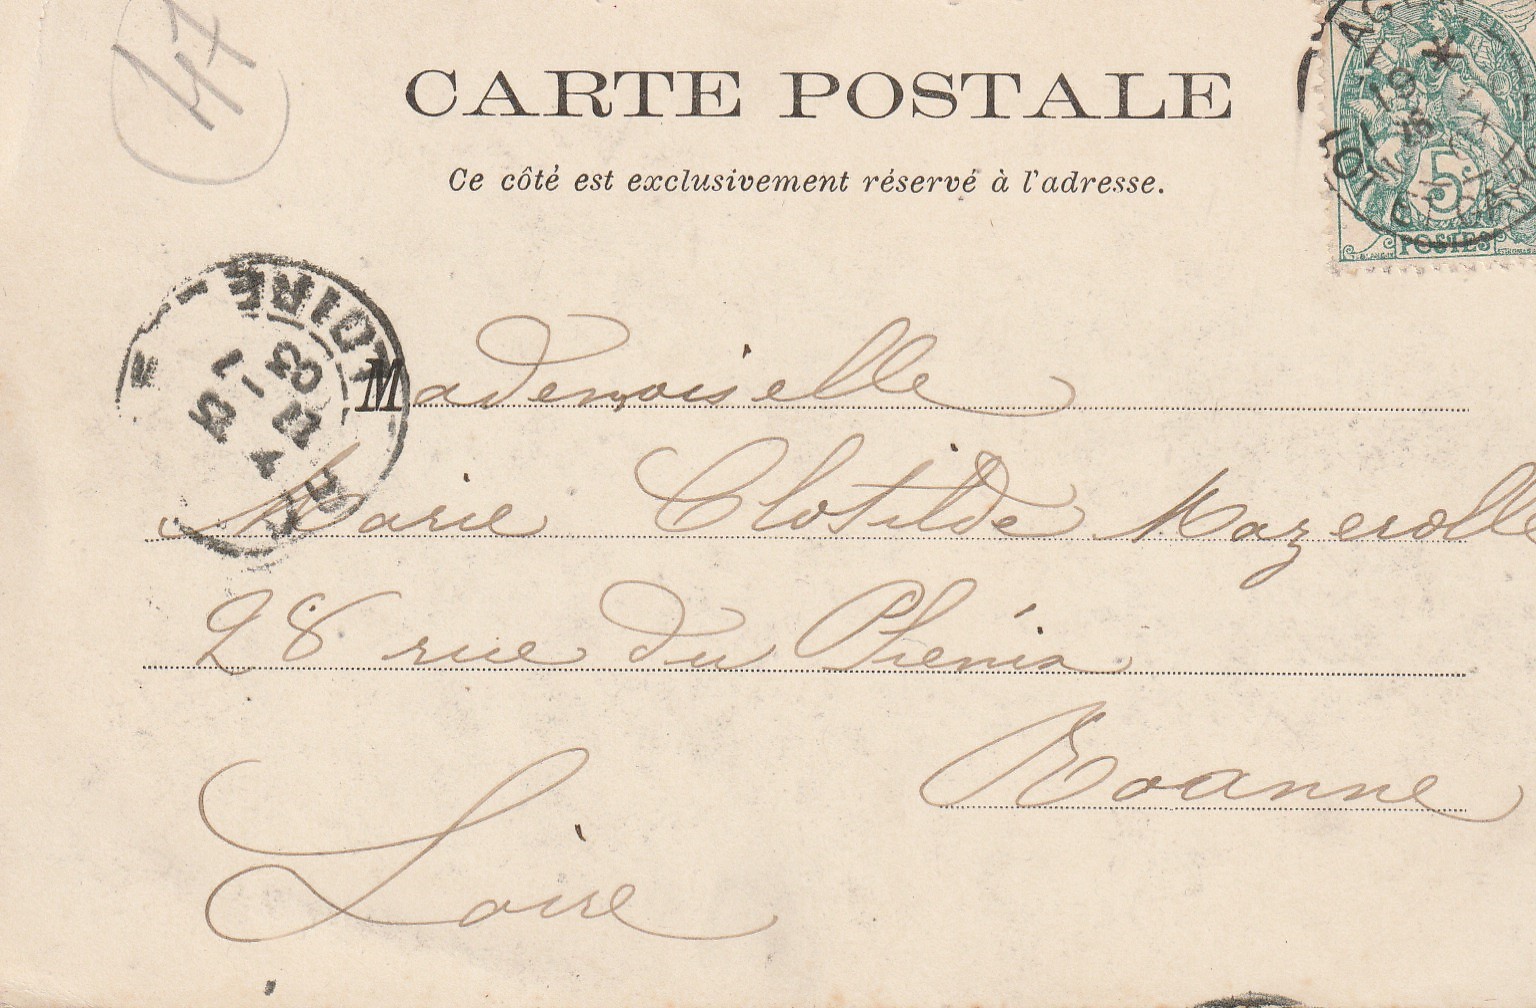 47
CARTE POSTALE
Ce côté est exclusivement réservé à l'adresse.
5
POSTES
LOIRE
Mademoiselle
Marie Clotilde Mazerolle
28 rue du Phénix
Roanne
Loire